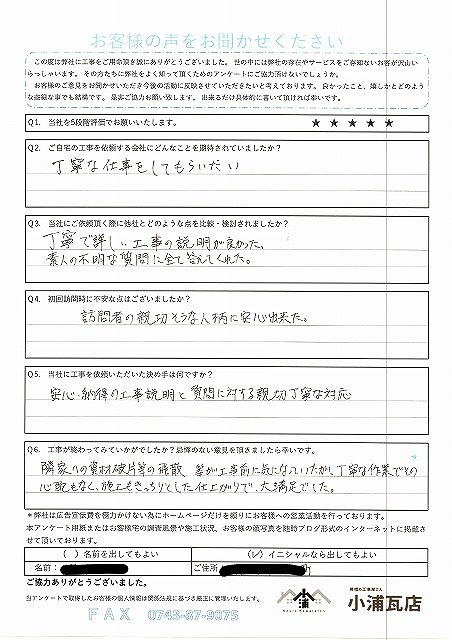 お客様の声をお聞かせください
この度は弊社に工事をご用命頂き誠にありがとうございました。 世の中には弊社の存在やサービスをご存知ないお客が沢山い
らっしゃいます。 その方たちに弊社をよく知って頂くためのアンケートにご協力頂けないでしょうか。
お客様のご意見をお聞かせいただき今後の活動に反映させていただきたいと考えております。 良かったこと、嬉しかとどのよう
な些細な事でも結構です。 是非ご協力お願い致します。 出来るだけ具体的に書いて頂ければ幸いです。
Q1. 当社を5段階評価でお願いいたします。 ★ ★ ★ ★ ★
Q2. ご自宅の工事を依頼する会社にどんなことを期待されていましたか?
丁寧な仕事をしてもらいたい
Q3. 当社にご依頼頂く際に他社とどのような点を比較・検討されましたか?
丁寧で詳しい工事の説明が良かった、
素人の不明な質問に全て答えてくれた。
Q4. 初回訪問時に不安な点はございましたか?
訪問者の親切そうな人柄に安心出来た。
Q5. 当社に工事を依頼いただいた決め手は何ですか?
安心・納得の工事説明と質問に対する親切丁寧な対応
Q6. 工事が終わってみていかがでしたか?忌憚のない意見を頂きましたら幸いです。
隣家への資材破片等の飛散 等が工事前に気になっていたが、丁寧な作業でその
心配もなく、施工もきっちりとした仕上がりで、大満足でした。
*弊社は広告宣伝費を極力かけない為にホームページだけを頼りにお客様への営業活動を行っております。
本アンケート用紙またはお客様宅の調査風景や施工状況、お客様の顔写真を随時ブログ形式のインターネットに掲載さ
せて頂いております。
( ) 名前を出してもよい (レ) イニシャルなら出してもよい
名前: ご住所 町
ご協力ありがとうございました。
当アンケートで取得したお客様の個人情報は関係法規に基づき厳正に管理いたします。
小浦瓦店
FAX 0743-87-9075